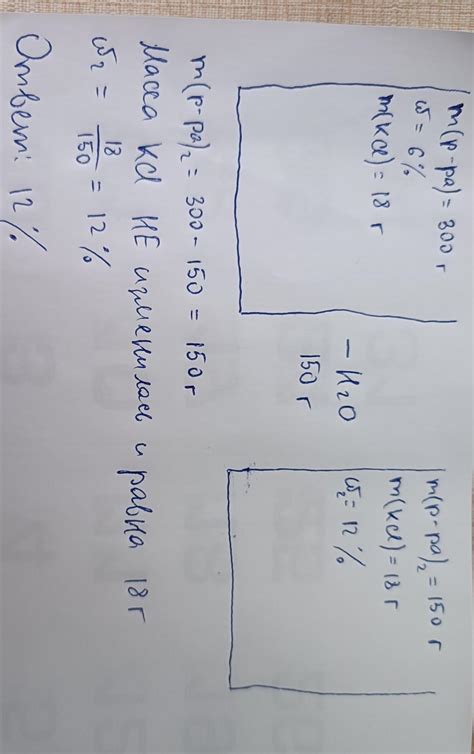 m(р-ра) = 300 г
ω = 6%
m(KCl) = 18 г
- H₂O
150 г
m(р-ра)₂ = 150 г
m(KCl) = 18 г
ω₂ = 12%
m(р-ра)₂ = 300 - 150 = 150 г
Масса KCl НЕ изменилась и равна 18 г
ω₂ = 18/150 = 12%
Ответ: 12%